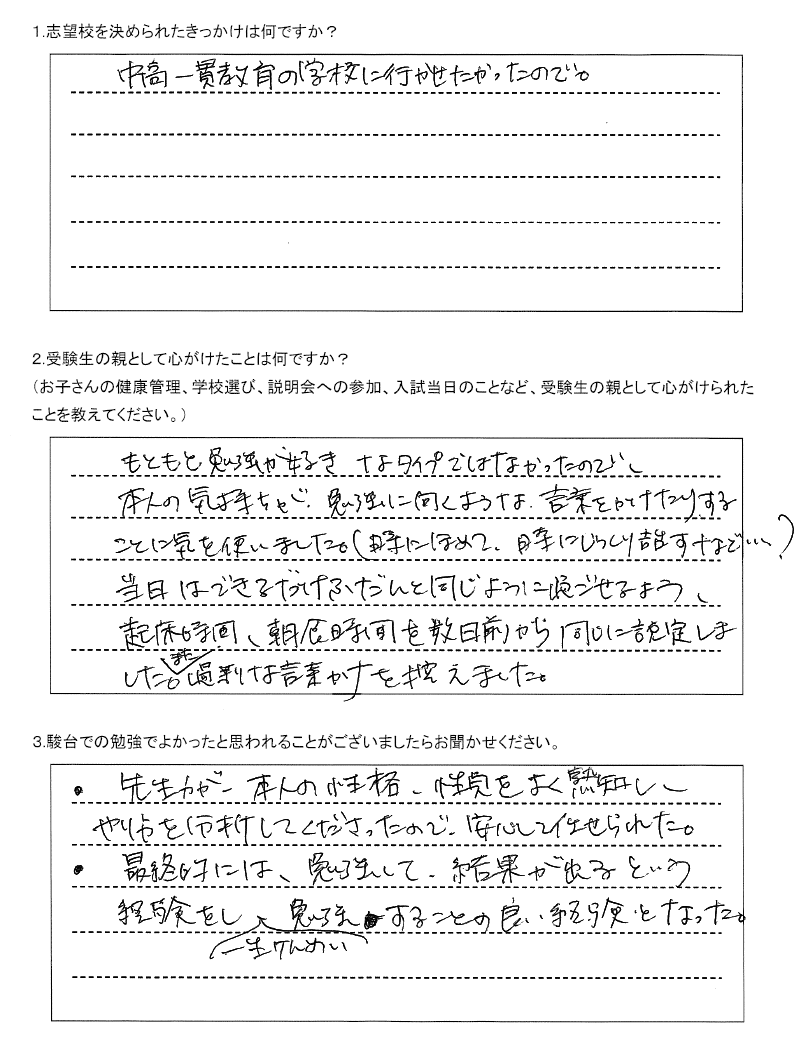 1.志望校を決められたきっかけは何ですか？
中高一貫教育の学校に行かせたかったので。
2.受験生の親として心がけたことは何ですか？
（お子さんの健康管理、学校選び、説明会への参加、入試当日のことなど、受験生の親として心がけられた
ことを教えてください。）
もともと勉強が好きなタイプではなかったので、
本人の気持ちが、勉強に向くような、言葉をかけたりする
ことに気を使いました。(時にほめて、時にじっくり話すなど…?)
当日はできるだけふだんと同じように過ごせるよう、
起床時間、朝食時間を数日前から同じに設定しま
した。また過剰な言葉かけを控えました。
3.駿台での勉強でよかったと思われることがございましたらお聞かせください。
• 先生方が、本人の性格、性質をよく熟知し、
やり方を分析してくださったので、安心して任せられた。
• 最終的には、勉強して、結果が出るという
経験をし、一生けんめい勉強することの良い経験となった。